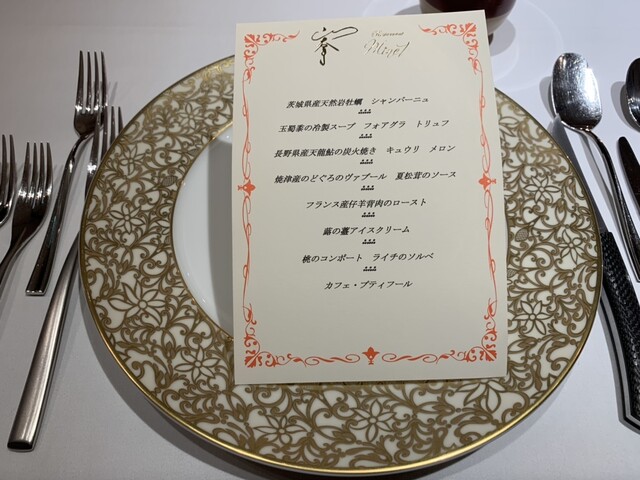 茨城県産天然岩牡蠣　シャンパーニュ
玉蜀黍の冷製スープ　フォアグラ　トリュフ
長野県産天龍鮎の炭火焼き　キュウリ　メロン
焼津産のどぐろのヴァプール　夏松茸のソース
フランス産仔羊背肉のロースト
蕗の薹アイスクリーム
桃のコンポート　ライチのソルベ
カフェ・プティフール